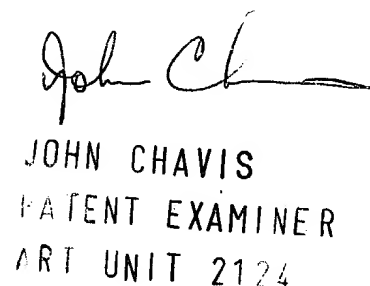 John Ch
JOHN CHAVIS
PATENT EXAMINER
ART UNIT 2124